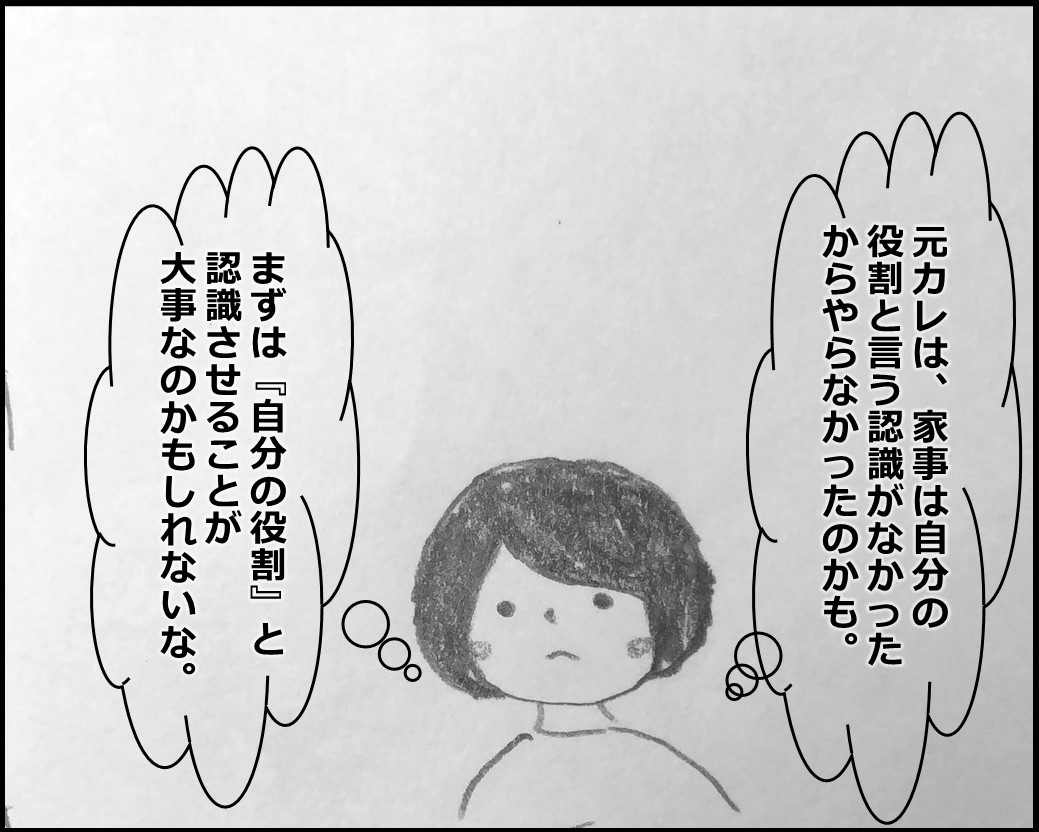 元カレは、家事は自分の
役割と言う認識がなかった
からやらなかったのかも。
まずは『自分の役割』と
認識させることが
大事なのかもしれないな。